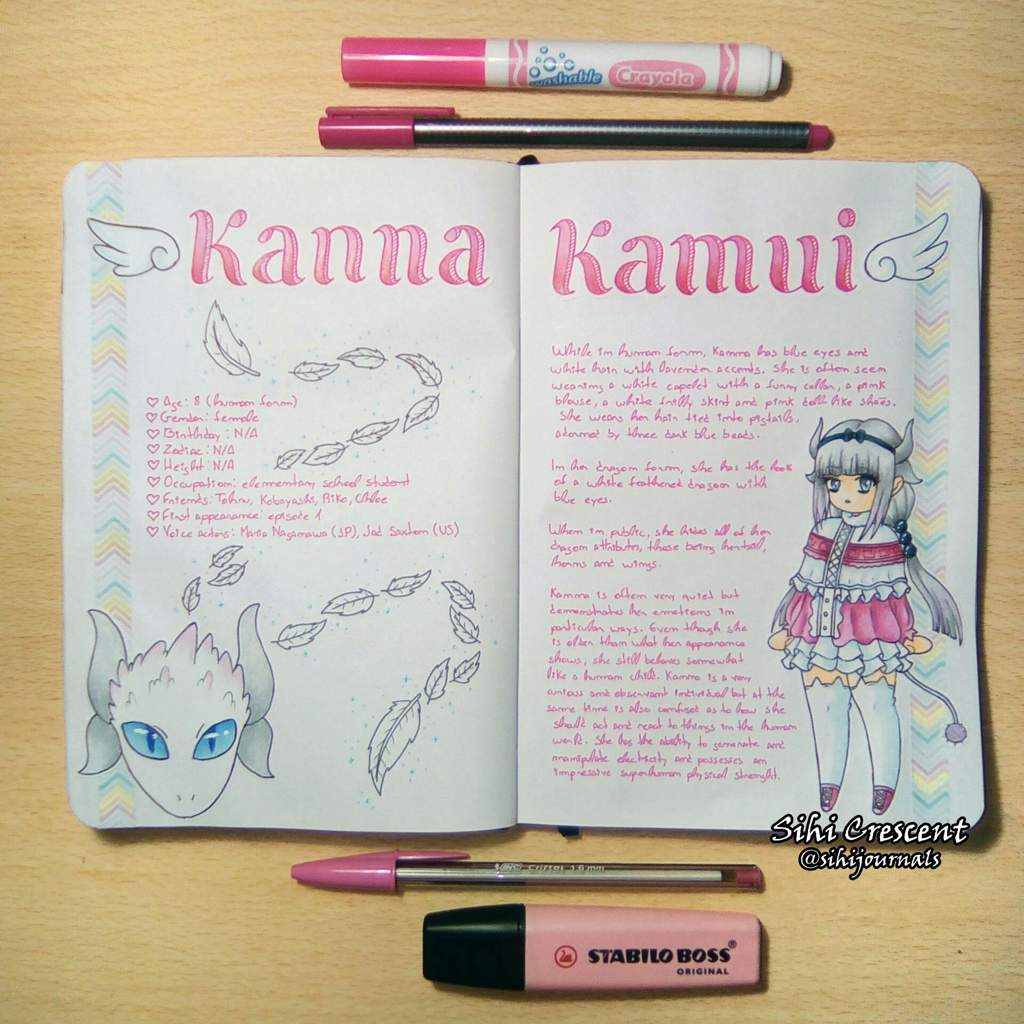 washable Crayola
Kanna Kamui
♡ Age: 8 (human form)
♡ Gender: female
♡ Birthday: N/A
♡ Zodiac: N/A
♡ Height: N/A
♡ Occupation: elementary school student
♡ Friends: Tohru, Kobayashi, Riko, Chloe
♡ First appearance: episode 1
♡ Voice actors: Maria Naganawa (JP), Jad Saxton (US)
While in human form, Kanna has blue eyes and
white hair with lavender accents. She is often seen
wearing a white capelet with a funny collar, a pink
blouse, a white frilly skirt and pink doll-like shoes.
She wears her hair tied into pigtails,
adorned by three dark blue beads.
In her dragon form, she has the look
of a white feathered dragon with
blue eyes.
When in public, she hides all of her
dragon attributes, those being her tail,
horns and wings.
Kanna is often very quiet but
demonstrates her emotions in
particular ways. Even though she
is older than what her appearance
shows, she still behaves somewhat
like a human child. Kanna is a very
curious and observant individual but at the
same time is also confused as to how she
should act and react to things in the human
world. She has the ability to generate and
manipulate electricity and possesses an
impressive superhuman physical strenght.
Sihi Crescent
@sihijournals
BIC Cristal 1.6 mm
STABILO BOSS®
ORIGINAL